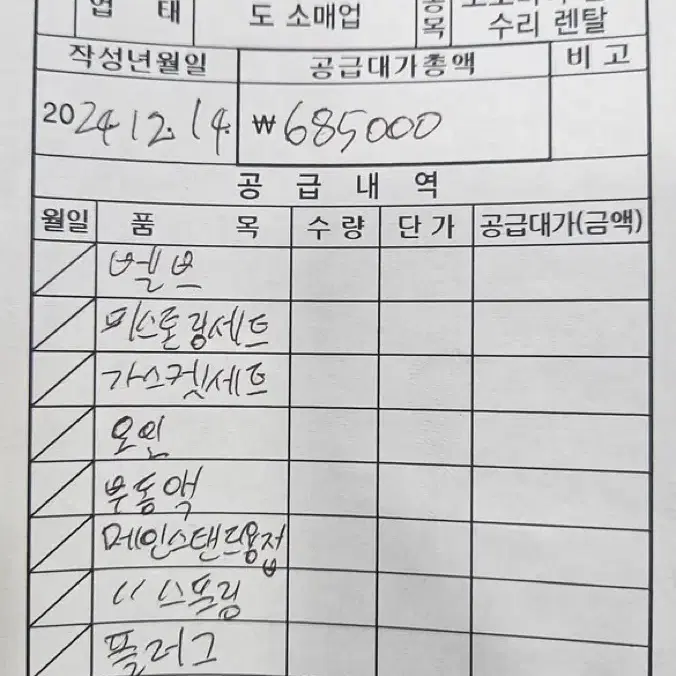 업 태
도 소매업
목
수리 렌탈
작성년월일
공급대가총액
비 고
2024 12. 14.
₩685000
공 급 내 역
월일 품 목 수 량 단 가 공급대가(금액)
벨브
피스톤링세트
가스켓세트
오일
부동액
메인스탠드용접
〃 스프링
플러그